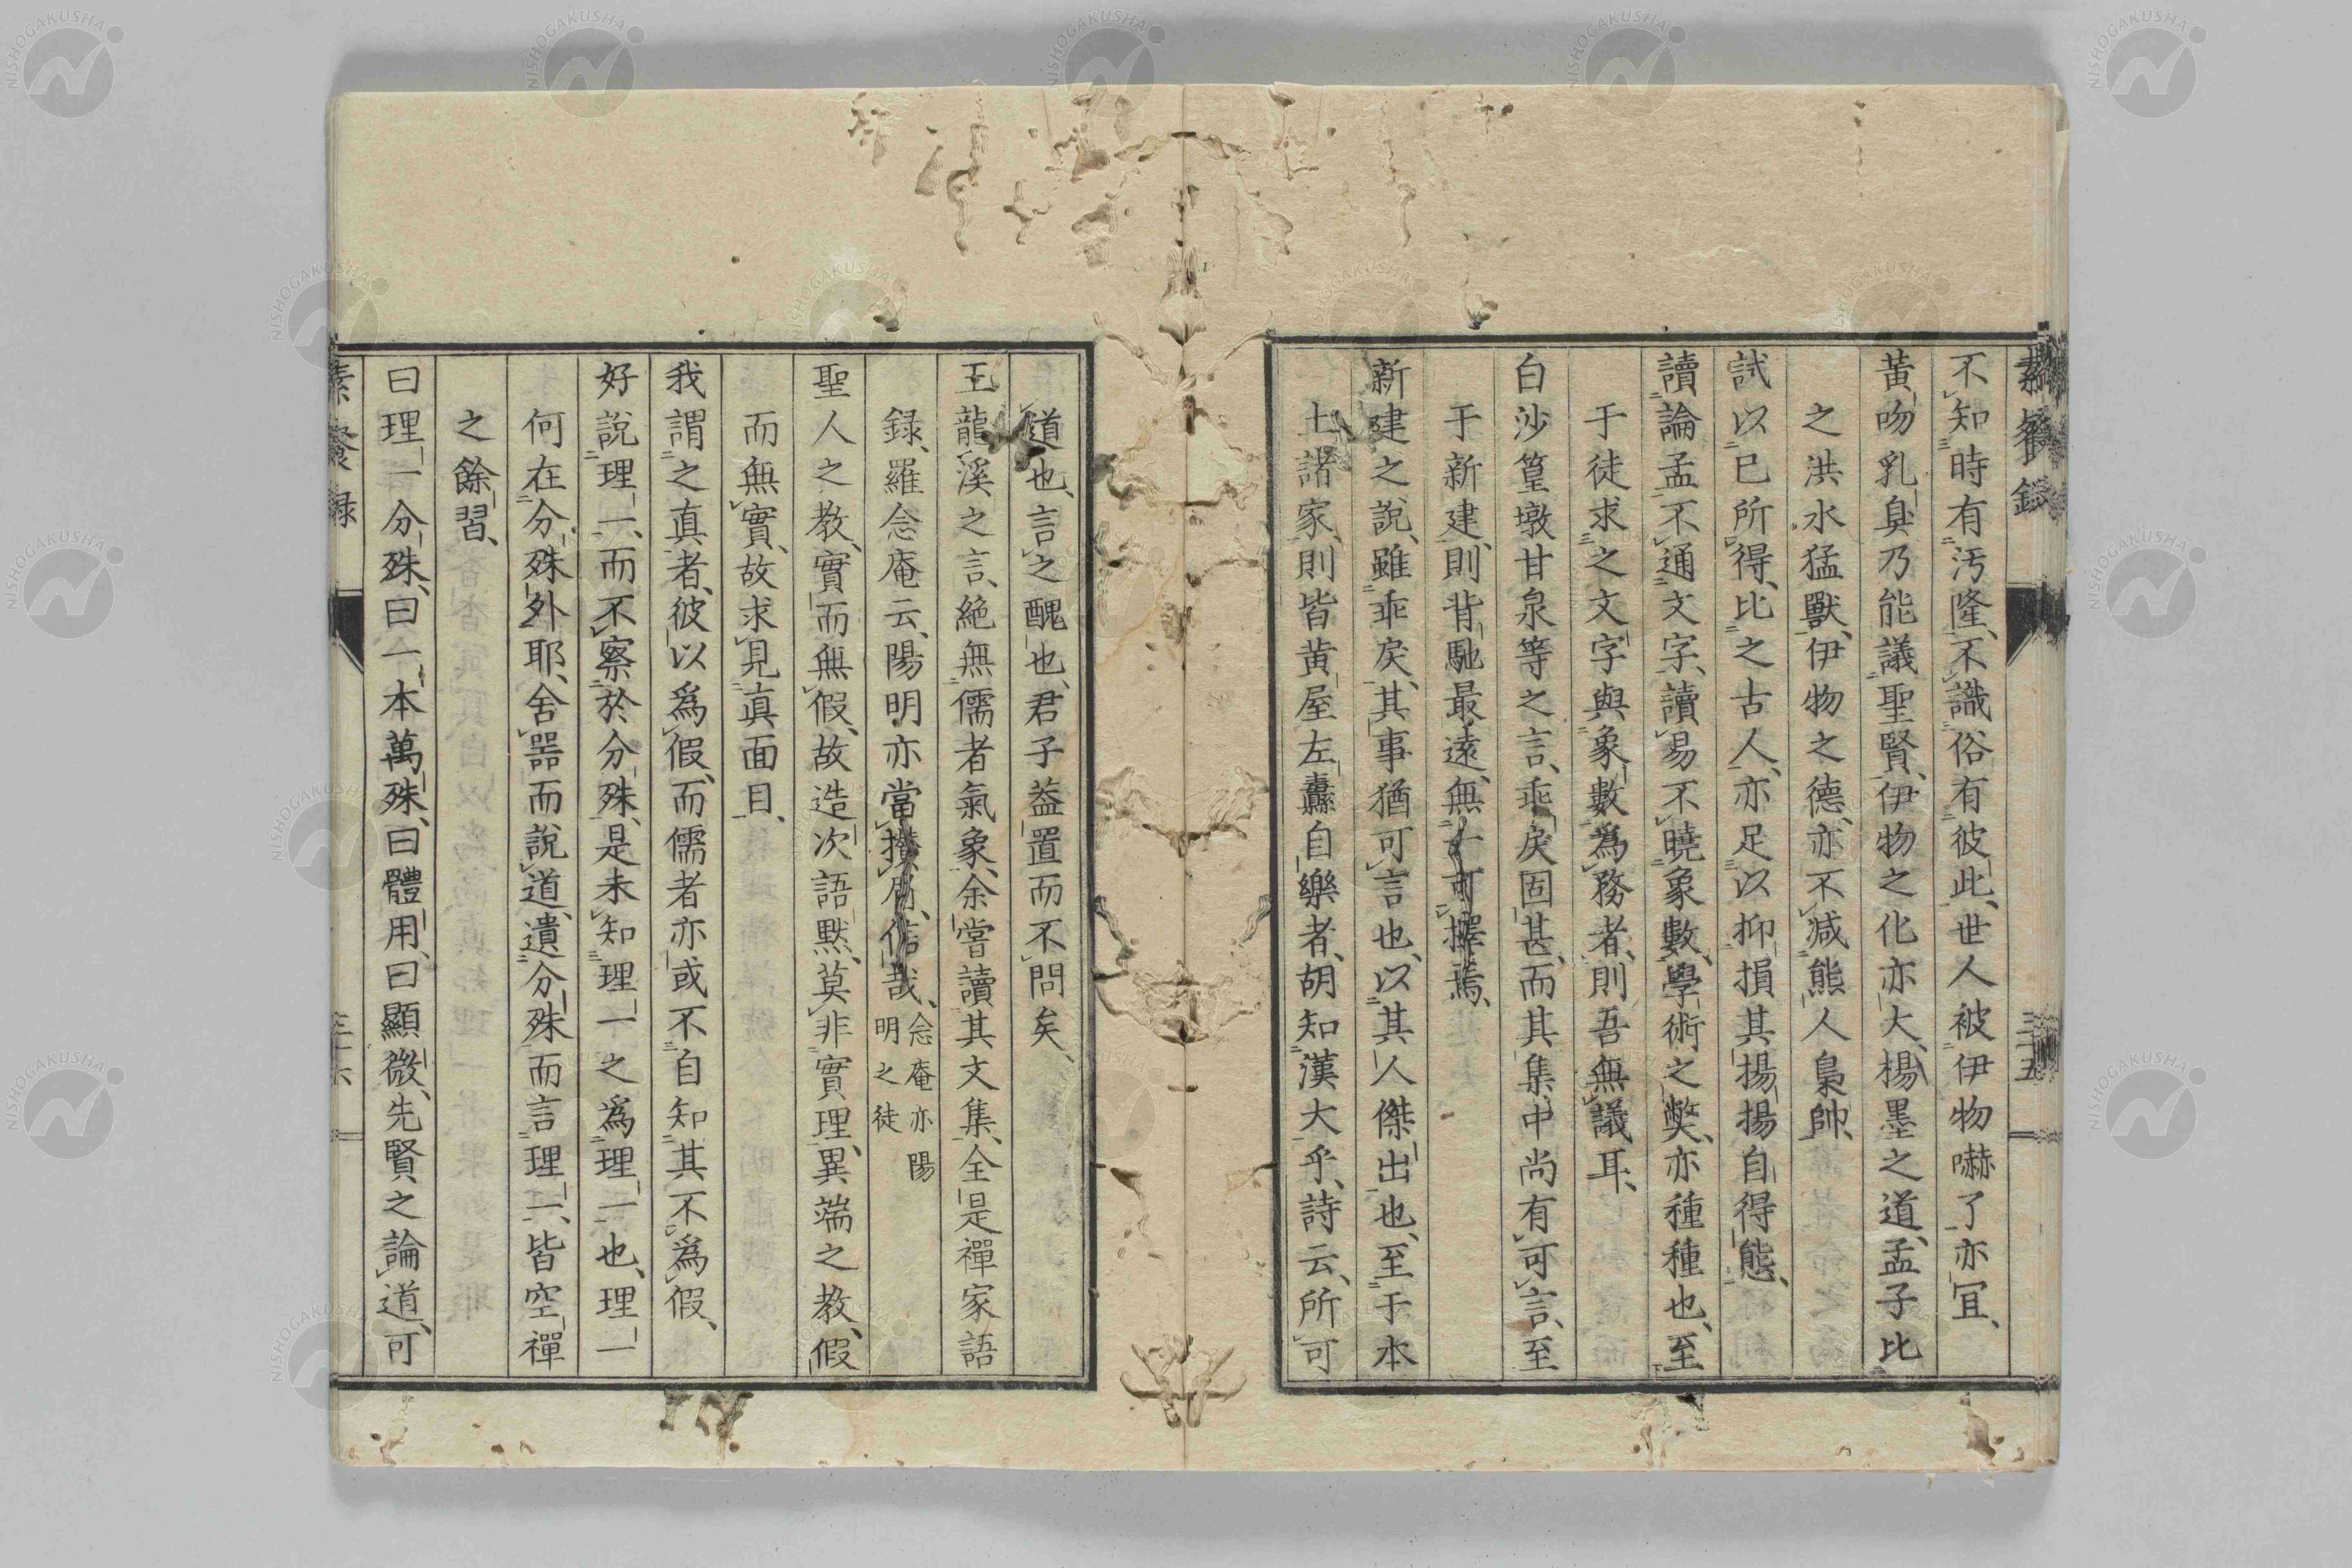 素餐録
三十五
不知時有汚隆、不識俗有彼此、世人被伊物嚇了亦冝、
黃吻乳臭乃能議聖賢、伊物之化亦大、楊墨之道、孟子比
之洪水猛獸、伊物之德、亦不减熊人梟帥、
試以己所得、比之古人、亦足以抑損其揚揚自得態、
讀論孟不通文字、讀易不曉象數、學術之獘、亦種種也、至
于徒求之文字與象數爲務者、則吾無議耳、
白沙篁墩甘泉等之言、乖戾固甚、而其集中尚有可言、至
于新建、則背馳最遠、無一可擇焉、
新建之說、雖乖戾、其事猶可言也、以其人傑出也、至于本
土諸家、則皆黃屋左纛自樂者、胡知漢大乎、詩云、所可
道也、言之醜也、君子葢置而不問矣、
王龍溪之言、絕無儒者氣象、余嘗讀其文集、全是禪家語
録、羅念庵云、陽明亦當攢眉、信哉、念庵亦陽明之徒
聖人之教、實而無假、故造次語默、莫非實理、異端之教、假
而無實、故求見真面目、
我謂之真者、彼以爲假、而儒者亦或不自知其不爲假、
好說理一、而不察於分殊、是未知理一之爲理一也、理一
何在分殊外耶、舍器而說道、遺分殊而言理一、皆空禪
之餘習、
曰理一分殊、曰一本萬殊、曰體用、曰顯微、先賢之論道、可
素餐録
三十六
NISHOGAKUSHA